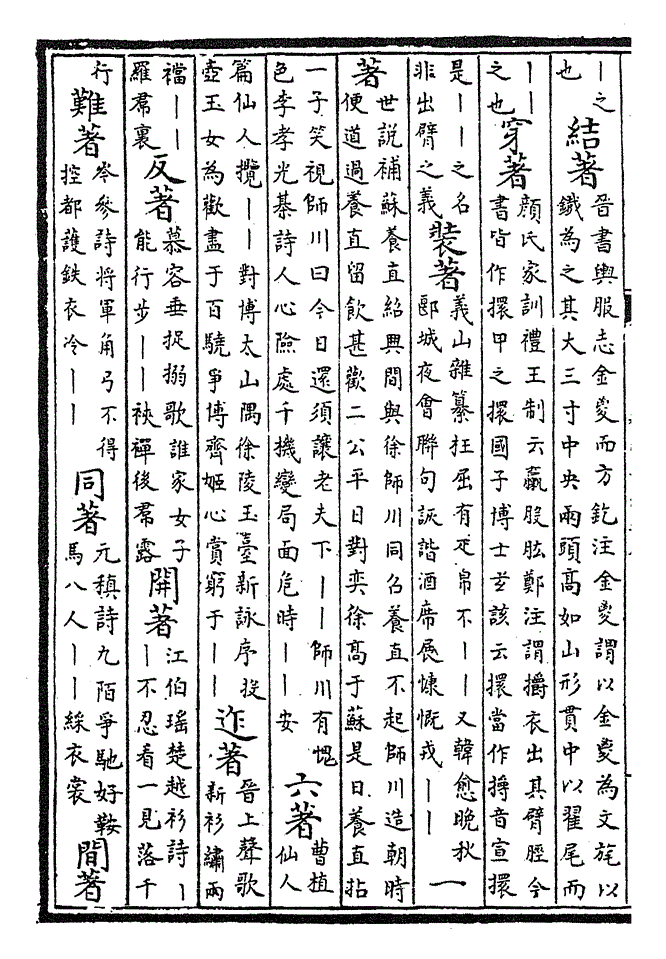 丨之也結著晉書輿服志金㚇而方釳注金㚇謂以金㚇為文旄以鐵為之其大三寸中央兩頭髙如山形貫中以翟尾而
丨丨之也穿著顔氏家訓禮王制云羸股肱鄭注謂㩋衣出其臂脛今書皆作擐甲之擐國子博士蕭該云擐當作㩋音宣擐
是丨丨之名非出臂之義裝著義山雜纂狂屈有疋帛不丨丨又韓愈晚秋郾城夜會聯句詼諧酒席展慷慨戎丨丨一
著世説補蘇養直紹興間與徐師川同召養直不起師川造朝時便道過養直留飲甚歡二公平日對奕徐髙于蘇是日養直拈
一子笑視師川曰今日還須讓老夫下丨丨師川有愧色李孝光棊詩人心險處千機變局面危時丨丨安六著曹植仙人
篇仙人攬丨丨對博太山隅徐陵玉臺新詠序投壺玉女為歡盡于百驍爭博齊姬心賞窮于丨丨迮著晉上聲歌新衫繡兩
襠丨丨羅帬裏反著慕容垂捉搦歌誰家女子能行步丨丨裌襌後帬露開著江伯瑶楚越衫詩丨丨不忍看一見落千
行難著岑參詩將軍角弓不得控都護鉄衣冷丨丨同著元稹詩九陌爭馳好鞍馬八人丨丨綵衣裳間著